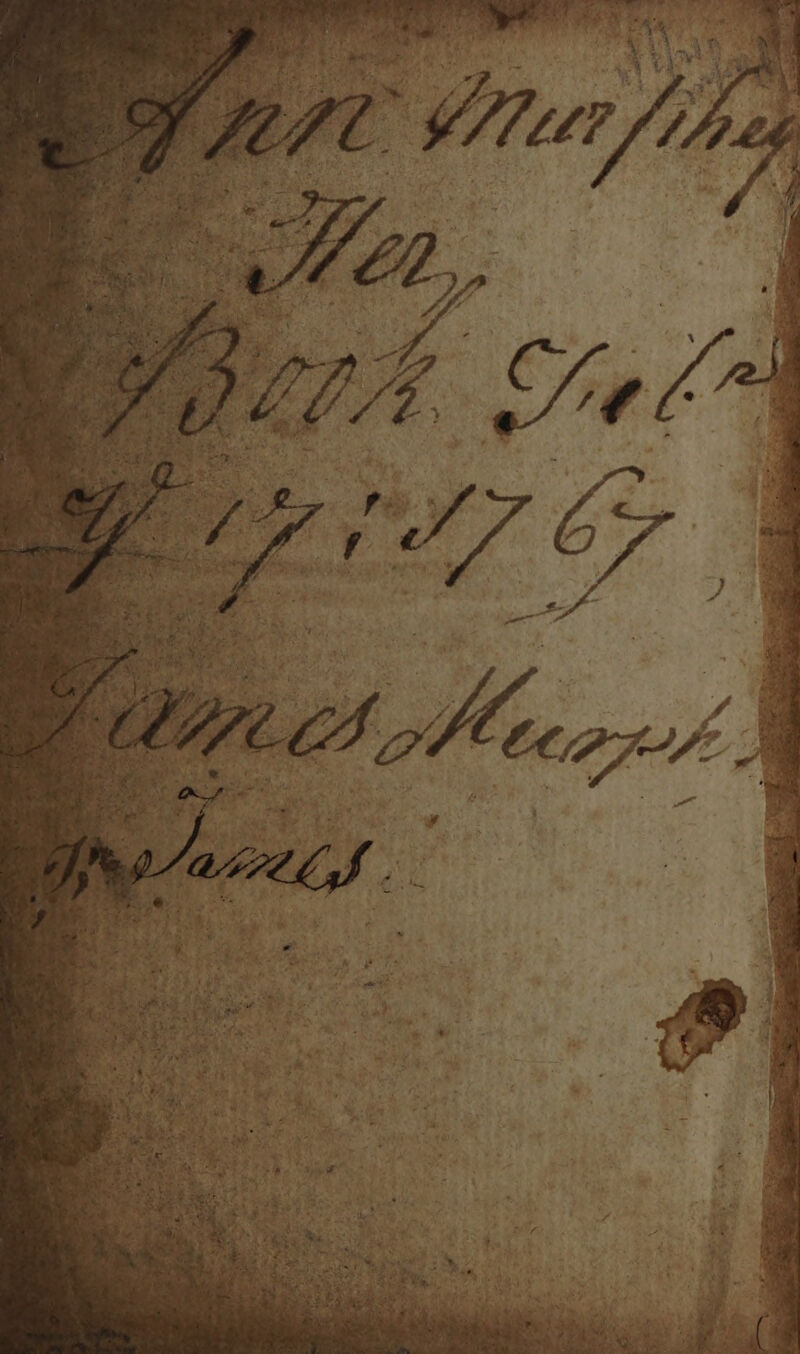 Ann Murphey
Her
Book Febr
ye 17 : 1767
James Murph
James